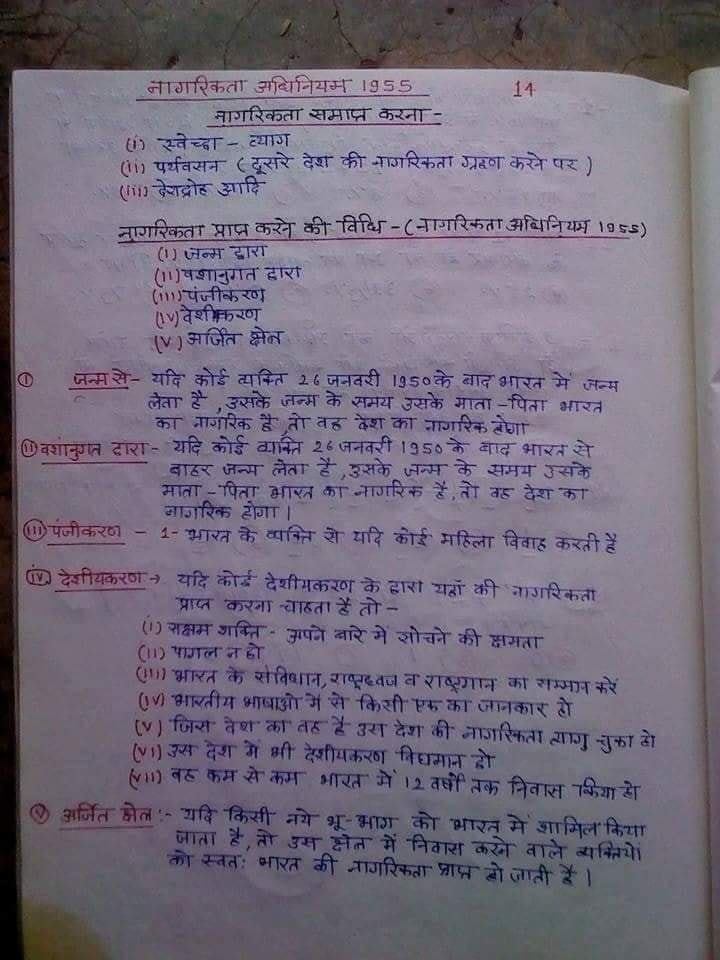 नागरिकता अधिनियम 1955 14
नागरिकता समाप्त करना -
(i) स्वेच्छा - त्याग
(ii) पर्यवसन ( दूसरे देश की नागरिकता ग्रहण करने पर )
(iii) देशद्रोह आदि
नागरिकता प्राप्त करने की विधि - (नागरिकता अधिनियम 1955)
(i) जन्म द्वारा
(ii) वशानुगत द्वारा
(iii) पंजीकरण
(iv) देशीकरण
(v) अर्जित क्षेत्र
(i) जन्म से - यदि कोई व्यक्ति 26 जनवरी 1950 के बाद भारत में जन्म
लेता है , उसके जन्म के समय उसके माता - पिता भारत
का नागरिक है , तो वह देश का नागरिक होगा
(ii) वशानुगत द्वारा - यदि कोई व्यक्ति 26 जनवरी 1950 के बाद भारत से
बाहर जन्म लेता है , उसके जन्म के समय उसके
माता - पिता भारत का नागरिक है , तो वह देश का
नागरिक होगा ।
(iii) पंजीकरण - 1- भारत के व्यक्ति से यदि कोई महिला विवाह करती है
(iv) देशीयकरण → यदि कोई देशीयकरण के द्वारा यहाँ की नागरिकता
प्राप्त करना चाहता है तो -
(i) सक्षम शक्ति - अपने बारे में सोचने की क्षमता
(ii) पागल न हो
(iii) भारत के संविधान, राष्ट्रध्वज व राष्ट्रगान का सम्मान करें
(iv) भारतीय भाषाओ में से किसी एक का जानकार हो
(v) जिस देश का वह है उस देश की नागरिकता त्याग चुका हो
(vi) उस देश में भी देशीयकरण विद्यमान हो
(vii) वह कम से कम भारत में 12 वर्षो तक निवास किया हो
(v) अर्जित क्षेत्र :- यदि किसी नये भू-भाग को भारत में शामिल किया
जाता है , तो उस क्षेत्र में निवास करने वाले व्यक्तियों
को स्वतः भारत की नागरिकता प्राप्त हो जाती है ।